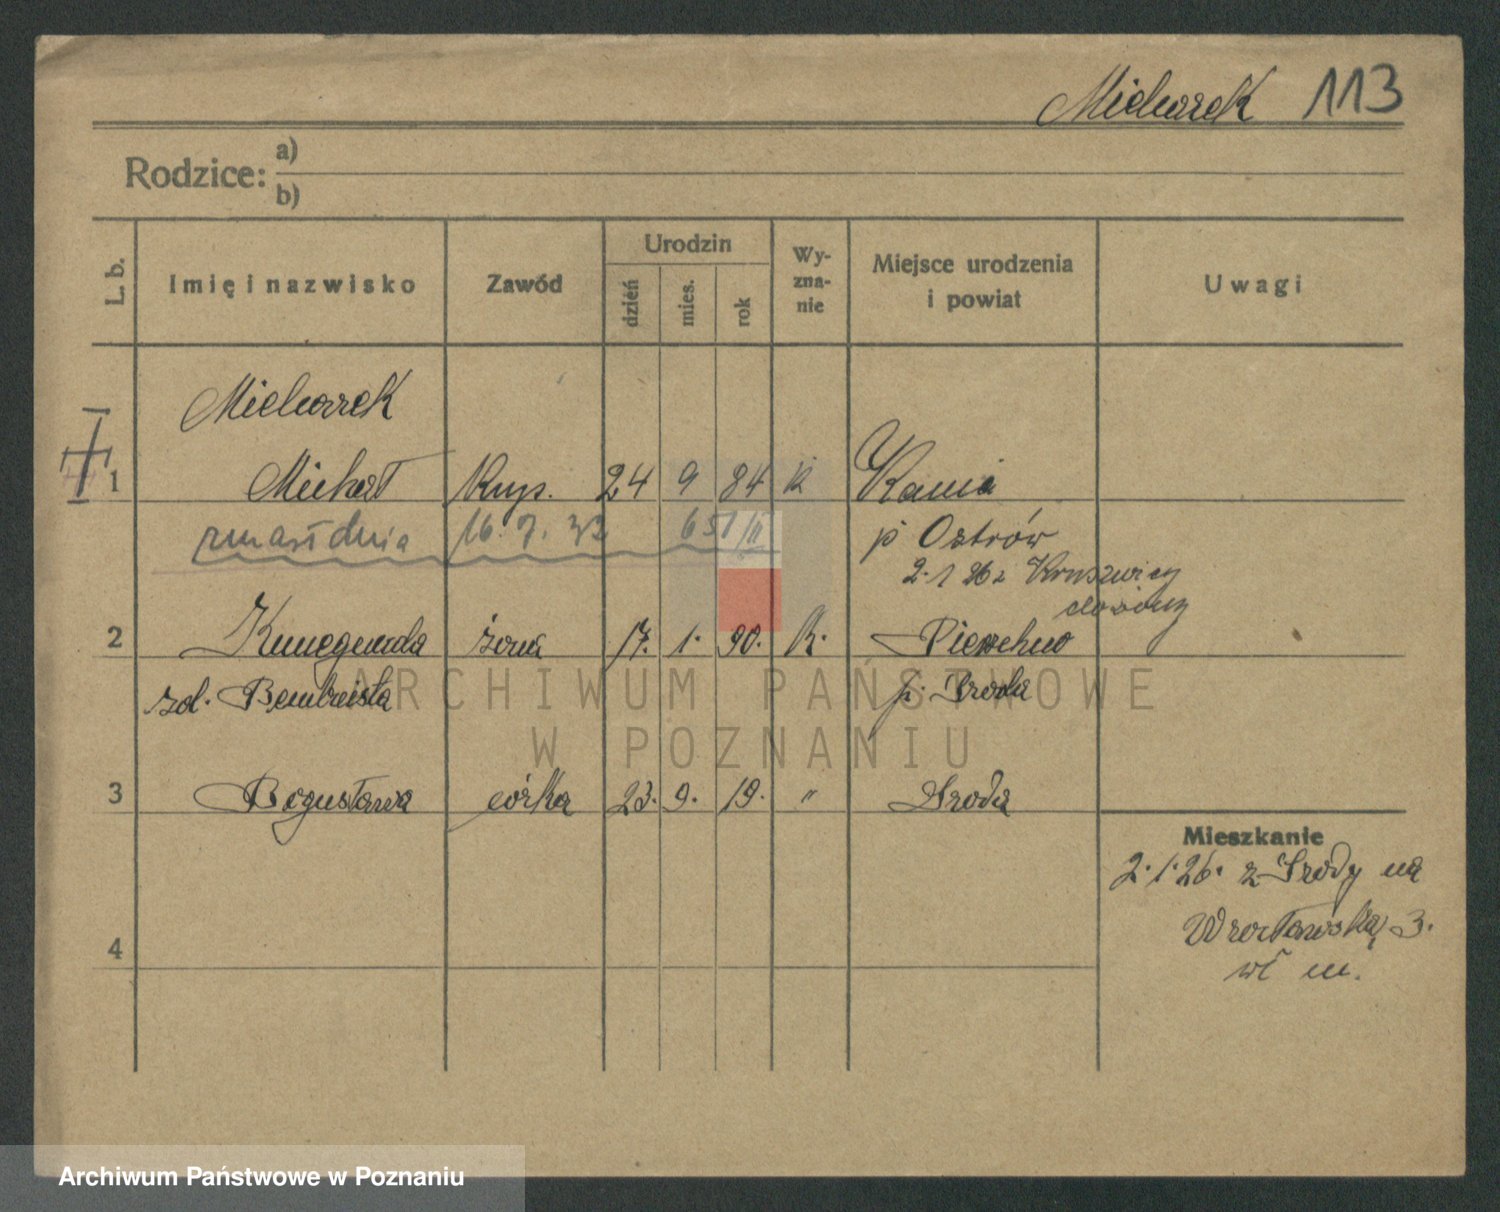 Michorek 113
Rodzice: a)
b)
L. b.
Imię i nazwisko
Zawód
Urodzin
dzień
mies.
rok
Wy-
zna-
nie
Miejsce urodzenia
i powiat
Uwagi
Michorek
1 Michał Kup. 24 9 84 k Kania
zmarł dnia 16. 7. 32 651/II p Ostrów
2.1 26 z Kruszwicy
2 Kunegunda żona 17. 1. 90. k. Pierzchno
p. Sroda
3 Bogusława córka 23. 9. 19. " Sroda
Mieszkanie
2.1.26. z Srody na
Wrocławską 3.
wł m.
4
ARCHIWUM PAŃSTWOWE
W POZNANIU
Archiwum Państwowe w Poznaniu